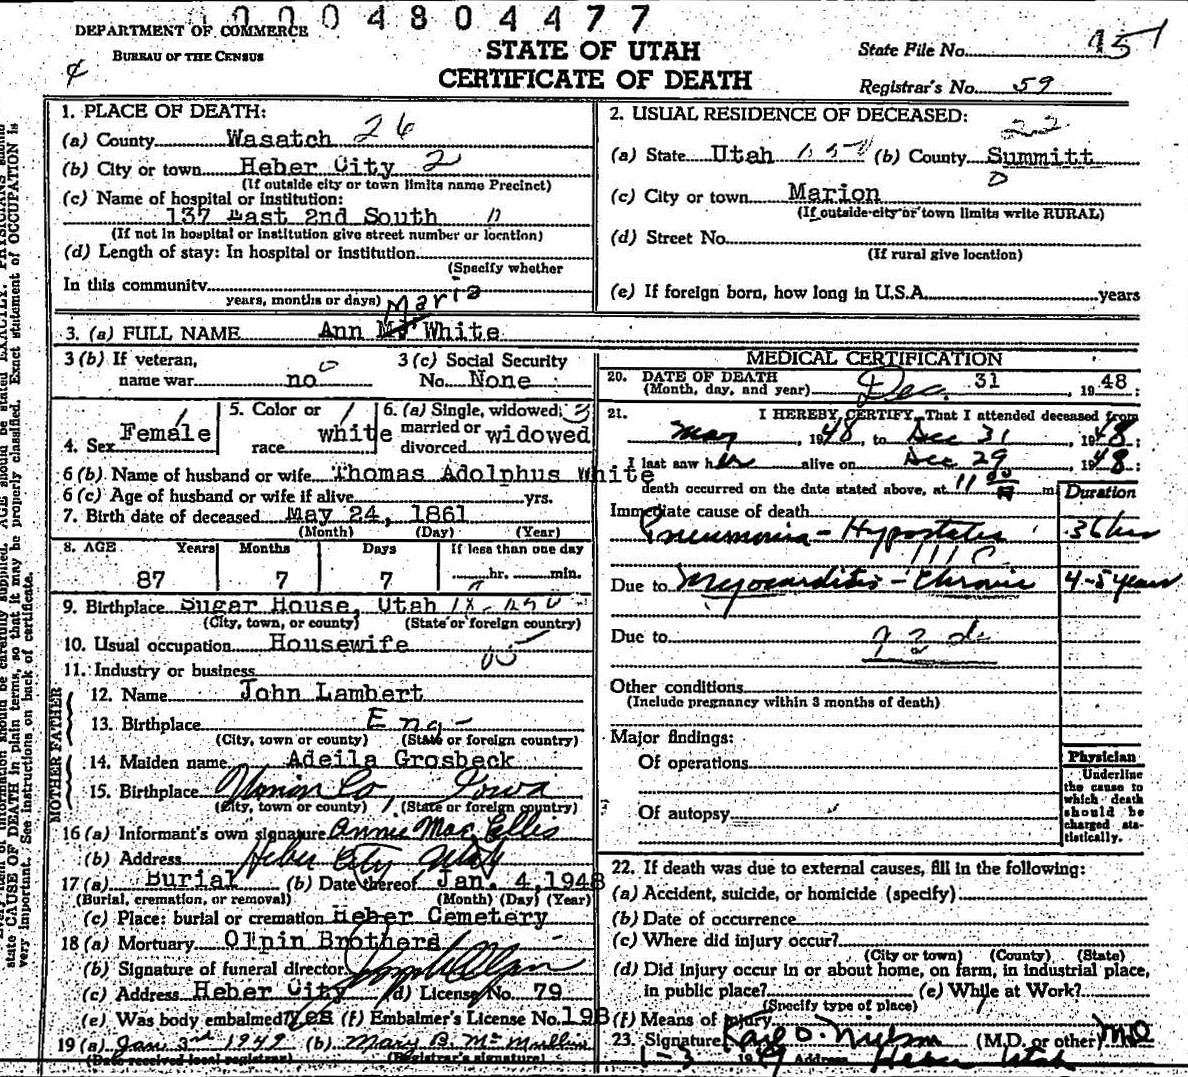 1000 4804477
DEPARTMENT OF COMMERCE
BUREAU OF THE CENSUS
STATE OF UTAH
CERTIFICATE OF DEATH
State File No. 451
Registrar's No. 59
1. PLACE OF DEATH:
(a) County Wasatch 26
(b) City or town Heber City 2
(If outside city or town limits name Precinct)
(c) Name of hospital or institution:
137 East 2nd South
(If not in hospital or institution give street number or location)
(d) Length of stay: In hospital or institution
(Specify whether
In this community
years, months or days)
2. USUAL RESIDENCE OF DECEASED:
22
(a) State Utah (b) County Summitt
(c) City or town Marion
(If outside city or town limits write RURAL)
(d) Street No.
(If rural give location)
(e) If foreign born, how long in U.S.A. years
Maria
3. (a) FULL NAME Ann M. White
3 (b) If veteran,
name war no
3 (c) Social Security
No. None
4. Sex Female
5. Color or
race white
6. (a) Single, widowed, 3
married or
divorced widowed
6 (b) Name of husband or wife Thomas Adolphus White
6 (c) Age of husband or wife if alive yrs.
7. Birth date of deceased May 24, 1861
(Month) (Day) (Year)
8. AGE Years Months Days If less than one day
87 7 7 hr. min.
9. Birthplace Sugar House, Utah
(City, town, or county) (State or foreign country)
10. Usual occupation Housewife
11. Industry or business
FATHER
12. Name John Lambert
13. Birthplace Eng-
(City, town or county) (State or foreign country)
MOTHER
14. Maiden name Adeila Grosbeck
15. Birthplace Union Co, Iowa
(City, town or county) (State or foreign country)
16 (a) Informant's own signature Annie Mae Ellis
(b) Address Heber City Utah
17 (a) Burial (b) Date thereof Jan. 4, 1948
(Burial, cremation, or removal) (Month) (Day) (Year)
(c) Place: burial or cremation Heber Cemetery
18 (a) Mortuary Olpin Brothers
(b) Signature of funeral director
(c) Address Heber City (d) License No. 79
(e) Was body embalmed? Yes (f) Embalmer's License No. 198
19 (a) Jan. 3rd 1949 (b) Mary B. McMullin
(Date received local registrar) (Registrar's signature)
MEDICAL CERTIFICATION
20. DATE OF DEATH
(Month, day, and year) Dec. 31, 1948;
21. I HEREBY CERTIFY, That I attended deceased from
May, 1948, to Dec 31, 1948;
I last saw her alive on Dec 29, 1948;
death occurred on the date stated above, at 11 00 m
Duration
Immediate cause of death
Pneumonia - Hypostatic 36 hrs
Due to Myocarditis - Chronic 4-5 years
Due to
Other conditions
(Include pregnancy within 3 months of death)
Major findings:
Of operations
Of autopsy
Physician
Underline
the cause to
which death
should be
charged sta-
tistically.
22. If death was due to external causes, fill in the following:
(a) Accident, suicide, or homicide (specify)
(b) Date of occurrence
(c) Where did injury occur?
(City or town) (County) (State)
(d) Did injury occur in or about home, on farm, in industrial place,
in public place? (e) While at Work?
(Specify type of place)
(f) Means of Injury
23. Signature Karl O. Nielson (M.D. or other) MD
1-3 1949 Address Heber Utah